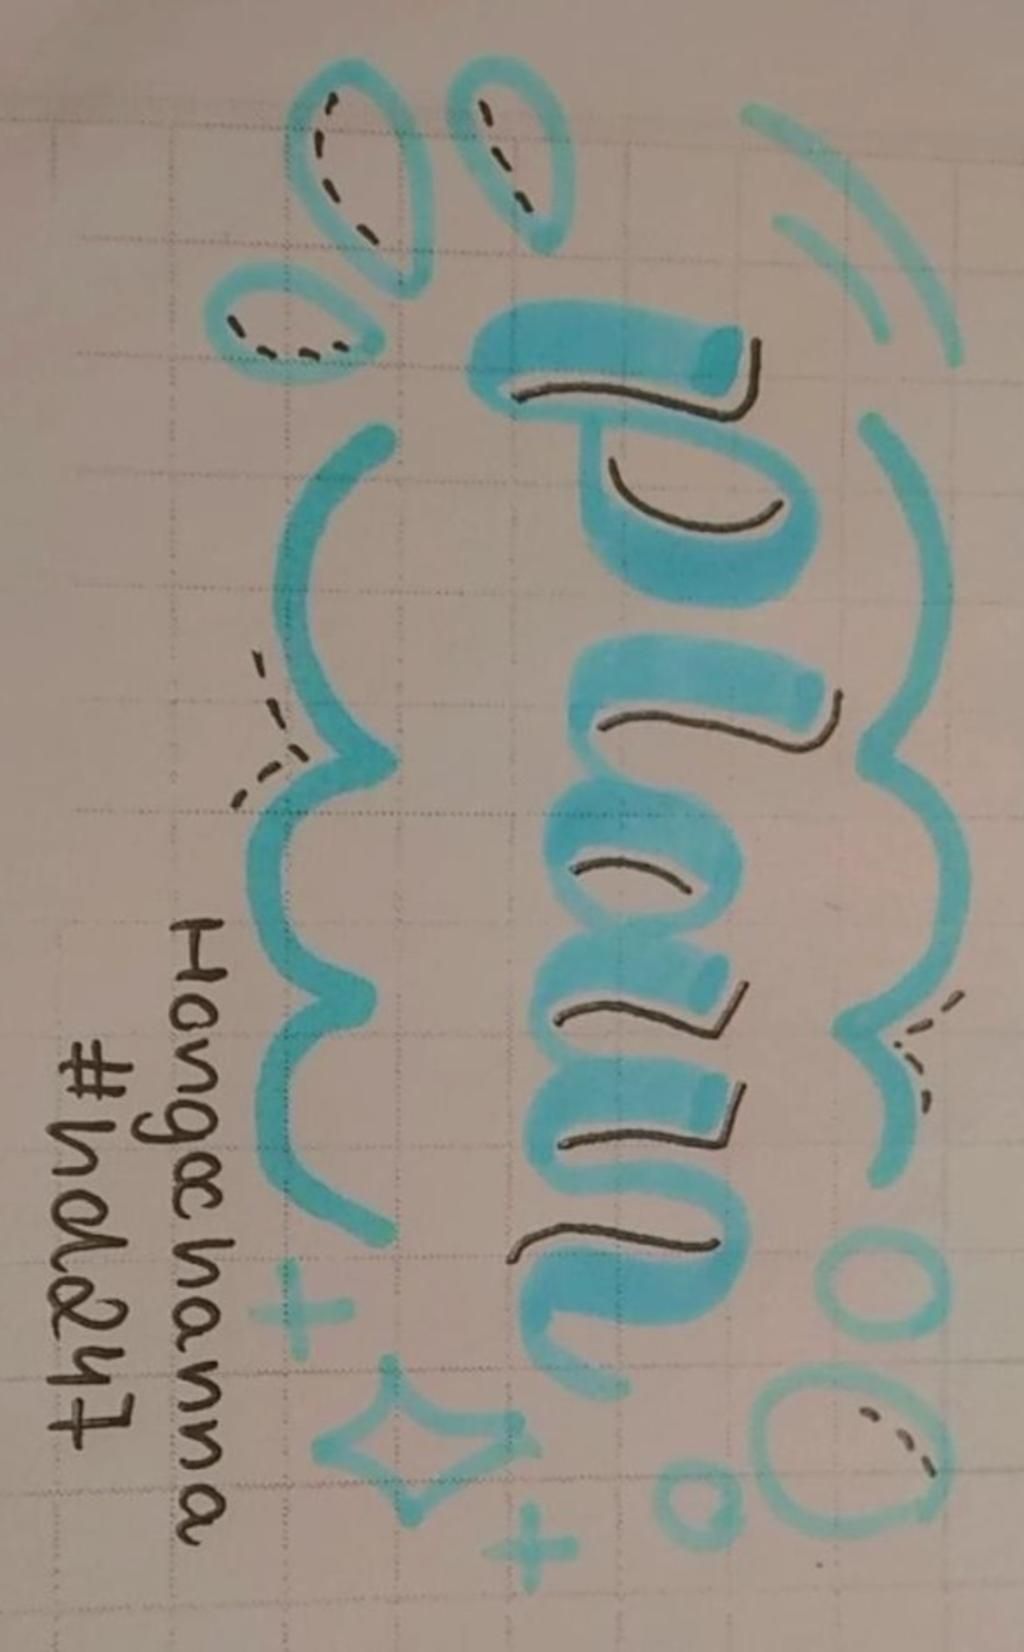 Plan
Hongachanna
#hd247